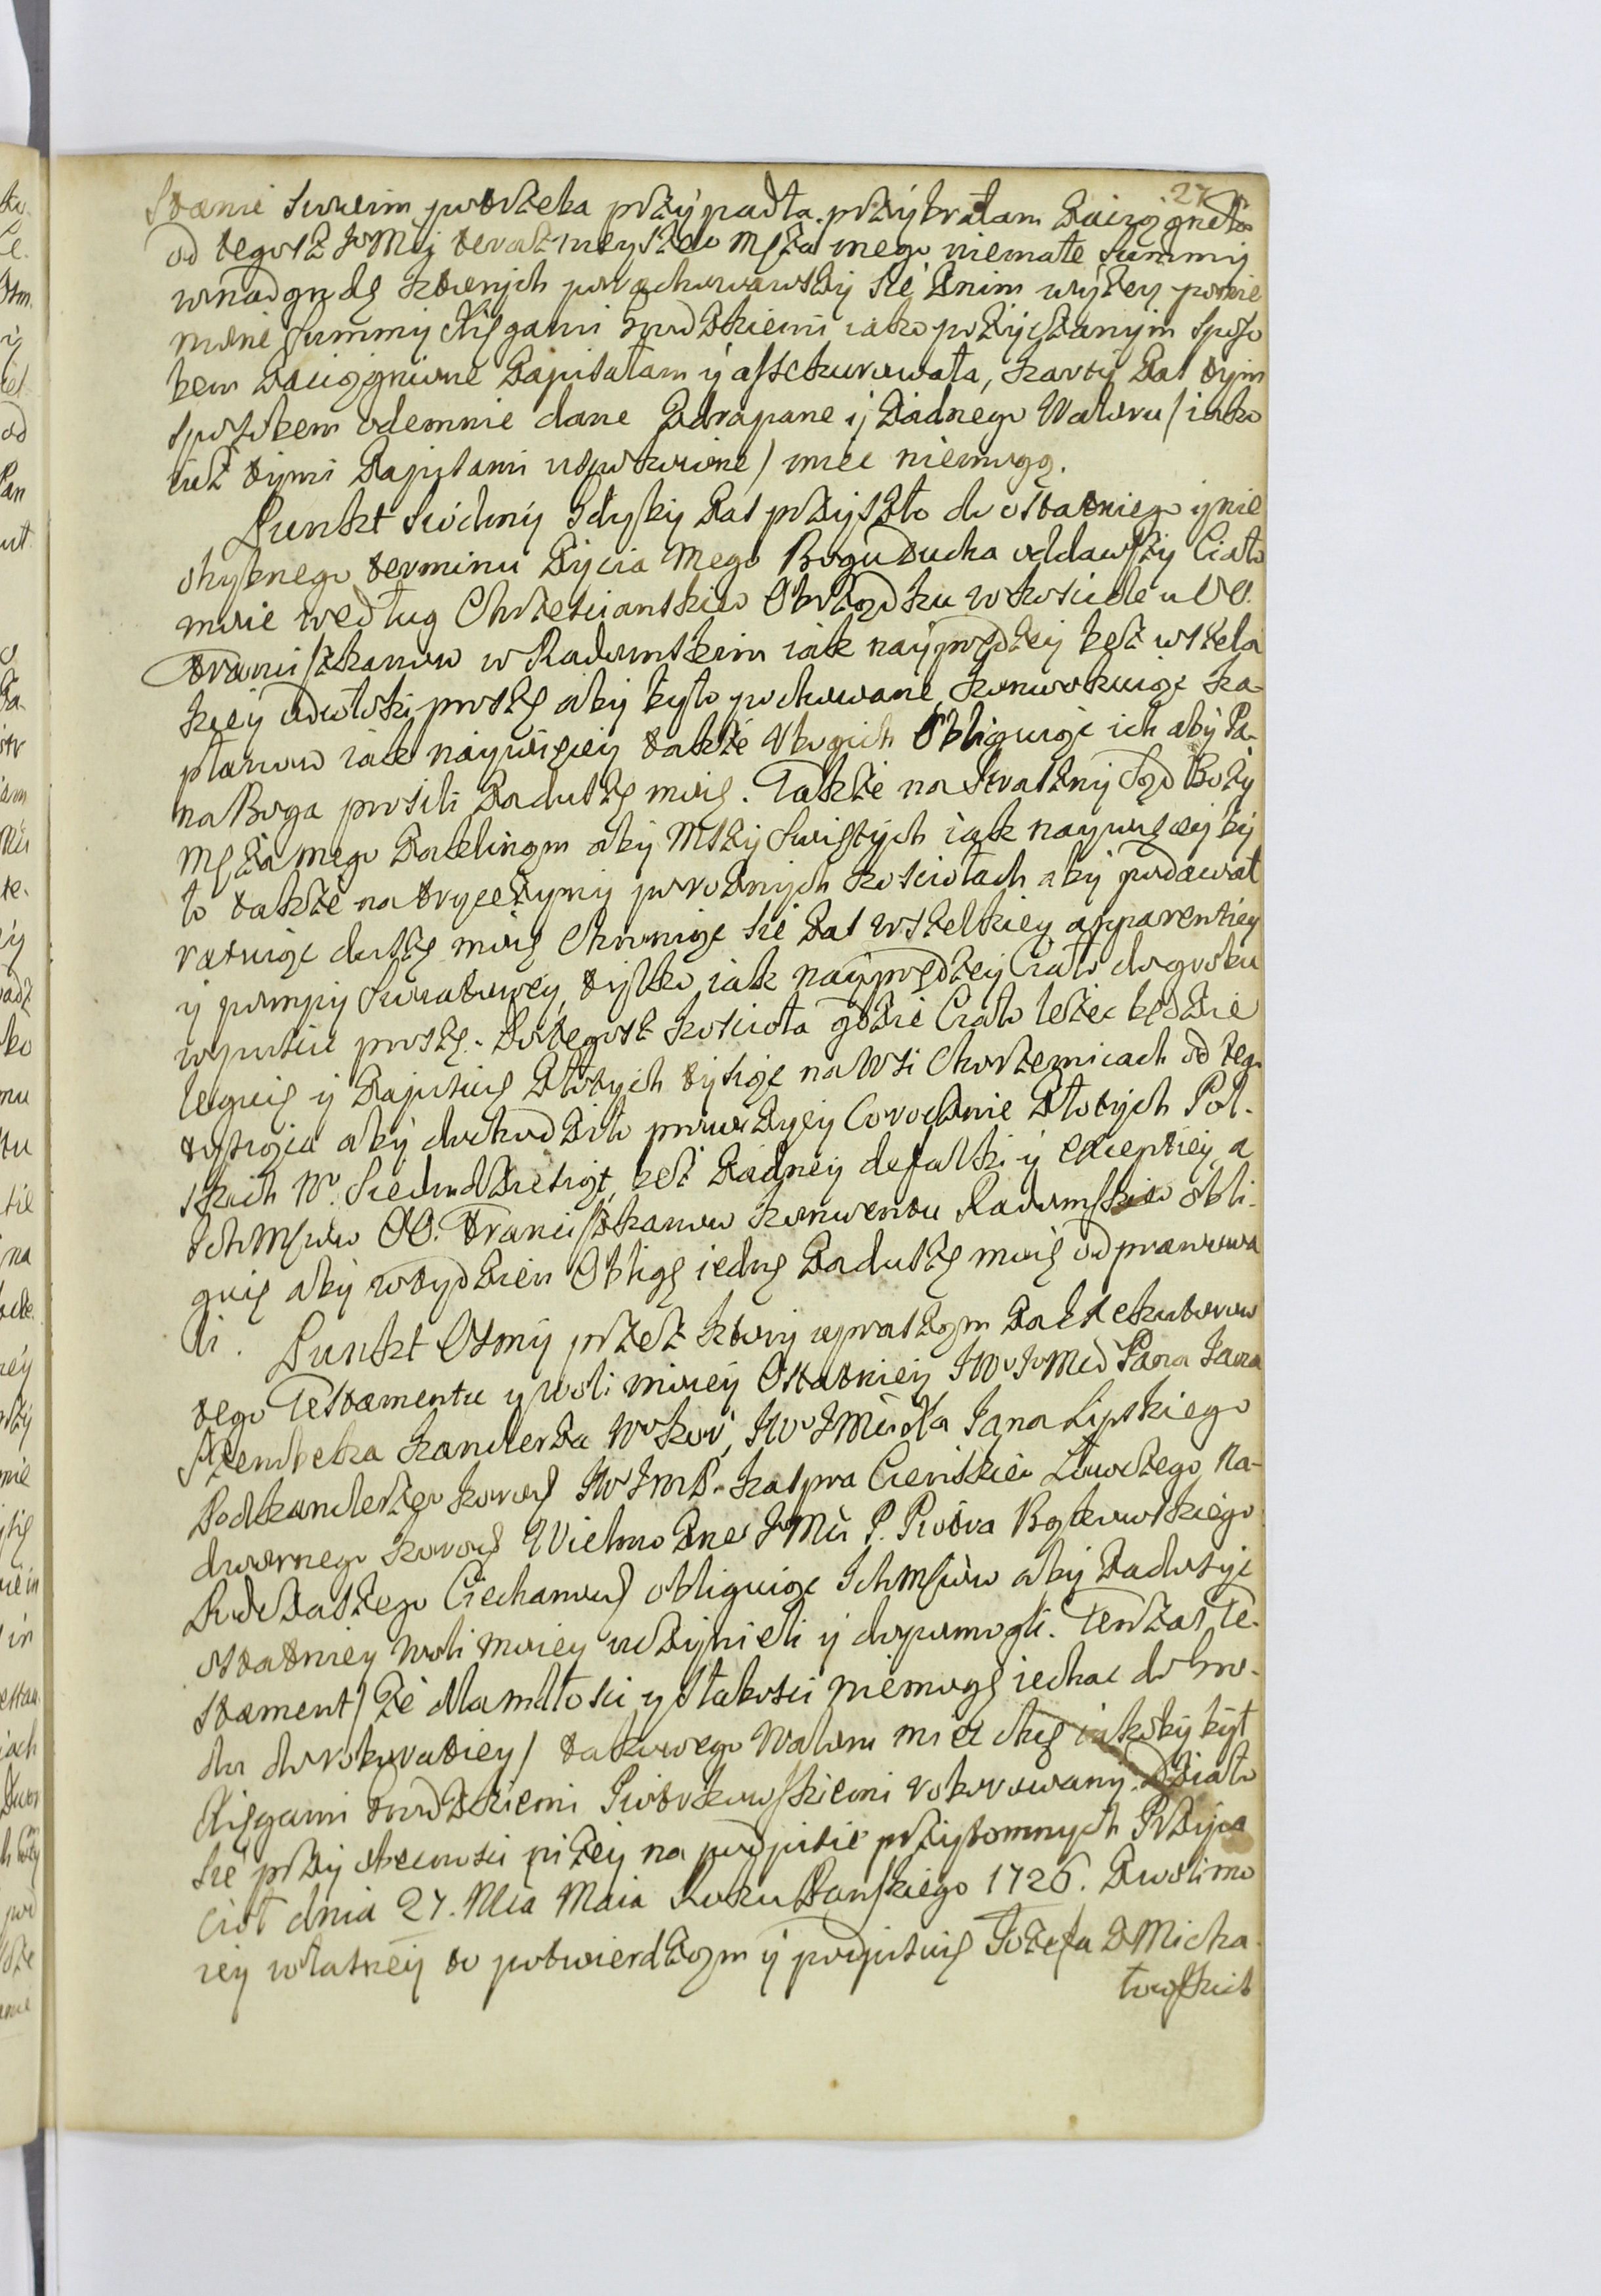 27
Stanie swoim potrzeba przypadła. przybrałam Zaciągneła
od tegosz JoMsci teraznieyszeo Męża mego niemałe summy
wnadgrodę ktorych porachowawszy się Znim wyżey pomie
nione summy Xięgami Grodzkiemi iako pożyczanym sposo
bem Zaciągnione Zapisałam y assekurowała, karty Zas tym
sposobem odemnie dane Zdrapane y Żadnego Waloru / iako
iuż tymi Zapisami uspokoione / miec niemogą.
Punkt siodmy Gdyby Zas przyszło do ostatniego ynie
chybnego terminu Życia Mego Bogu Ducha oddawszy Ciało
moie według Chrzescianskieo Obrządku wkosciele u OO.
Franciszkanow w Radomskim iak nayprędzey bez wszela
kiey odwłoki proszę aby było pochowane, konwokuiąc ka-
płanow iak naywięcey także Ubogich Obliguiąc ich aby Pa-
na Boga prosili Zaduszę moię. Także na straszny Sąd Boży
Męża mego Zaklinam aby Mszy Swiętych iak naywięcey by
ło także na trycezymy poroznych kosciołach aby podawał
ratuiąc duszę moię Chroniąc się Zas wszelkiey apparentiey
y pompy Swiatowey, tylko iak nayprędzey Ciało dogrobu
wpuscic proszę. Dotegosz koscioła gdzie Ciało leżec będzie
leguię y Zapisuię Złotych tysiąc na Wsi Chorzenicach od tego
tysiąca aby dochodziło prowizyey Corocznie Złotych Pol-
skich No. Siedmdziesiąt, bez Żadney defalki y excepciey, a
IchMsciow OO. Franciszkanow konwentu Radomskieo obli-
guię aby wtydzien Obligę iednę Zaduszę moię odprawowa
li. Punkt Osmy przez ktory upraszam Za Exekutorow
tego Testamentu y woli moiey Ostatniey JWo JoMsci Pana Jana
Szembeka kanclerza Wo kor, JWo JMci Xa Jana Lipskiego
Podkanclerzego koron JWo JmP. kaspra Cienskieo Łowczego Na-
dwornego koron Wielmożneo JoMci P. Piotra Bąkowskiego
Podczaszego Ciechanow obliguiąc IchMsciow aby Zadosyc
ostatniey Woli moiey uczynieli y dopomogli. Ten Zas Te-
stament / że dla mdłosci y słabosci niemogę iechac do Gro-
du do roboratiey / takowego Waloru miec chcę iakoby był
Xięgami Grodzkiemi Piotrkowskiemi roborowany. Działo
się przy obecnosci niżey na podpisie przytomnych Przyia
ciół dnia 27. Mca Maia Roku Panskiego 1726. Zwoli mo
iey własney to potwierdzam y podpisuię Jozefa Z Micha-
łowskich